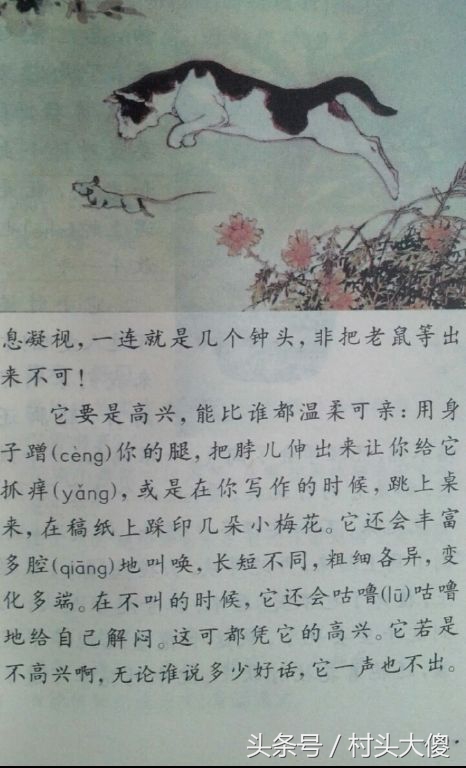 息凝视，一连就是几个钟头，非把老鼠等出
来不可！
它要是高兴，能比谁都温柔可亲：用身
子蹭(cèng)你的腿，把脖儿伸出来让你给它
抓痒(yǎng)，或是在你写作的时候，跳上桌
来，在稿纸上踩印几朵小梅花。它还会丰富
多腔(qiāng)地叫唤，长短不同，粗细各异，变
化多端。在不叫的时候，它还会咕噜(lū)咕噜
地给自己解闷。这可都凭它的高兴。它若是
不高兴啊，无论谁说多少好话，它一声也不出。
头条号／村头大傻